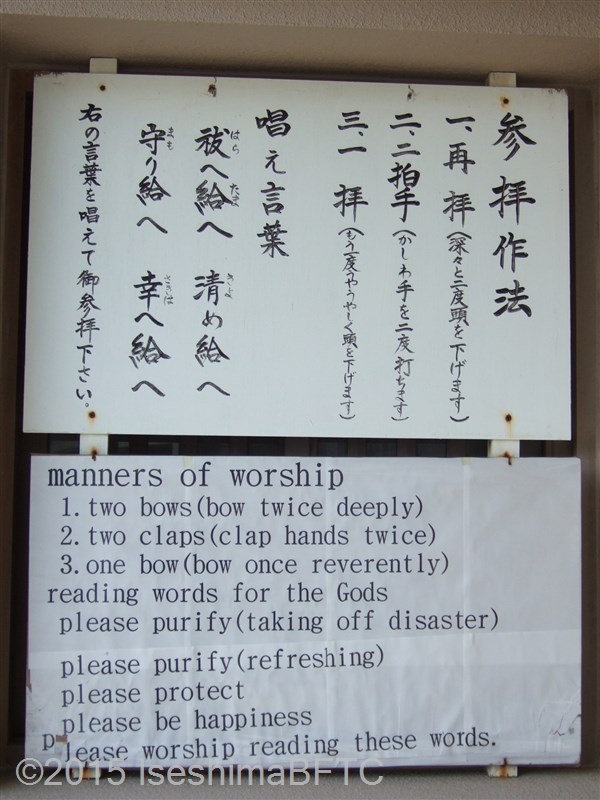 参拝作法
一、再拝(深々と二度頭を下げます)
二、二拍手(かしわ手を二度打ちます)
三、一拝(もう一度うやうやしく頭を下げます)
唱え言葉
祓へ給へ 清め給へ
守り給へ 幸へ給へ
右の言葉を唱えて御参拝下さい。
manners of worship
1.two bows(bow twice deeply)
2.two claps(clap hands twice)
3.one bow(bow once reverently)
reading words for the Gods
please purify(taking off disaster)
please purify(refreshing)
please protect
please be happiness
please worship reading these words.
©2015 IseshimaBFTC